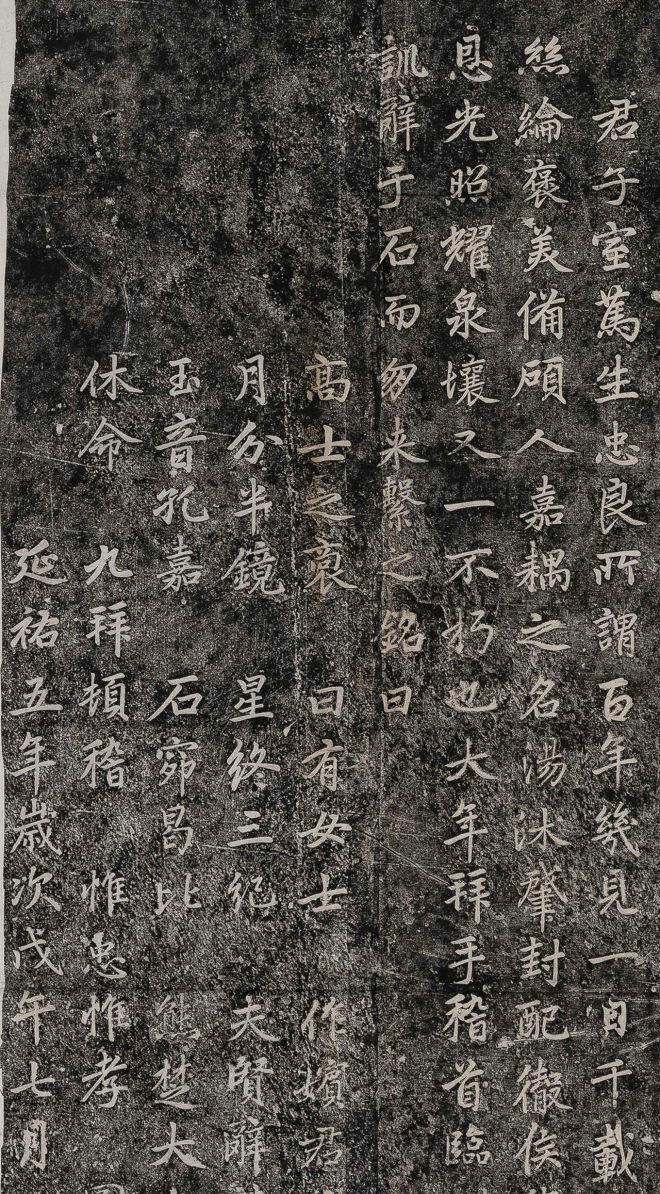 君子室萬生忠良所謂百年幾見一自千載
絲綸褒美備碩人嘉耦之名湯沐肇封配徹侯
恩光照耀泉壤又一不朽也大年拜手稽首臨
訓辭于石而匆来繫之銘曰
高士之裔 曰有女士 作嬪君
月分半鏡 星終三紀 夫賢辭
玉音孔嘉 石窌曷比 熊楚大
休命 九拜頓稽 惟忠惟孝
延祐五年歲次戊午七月